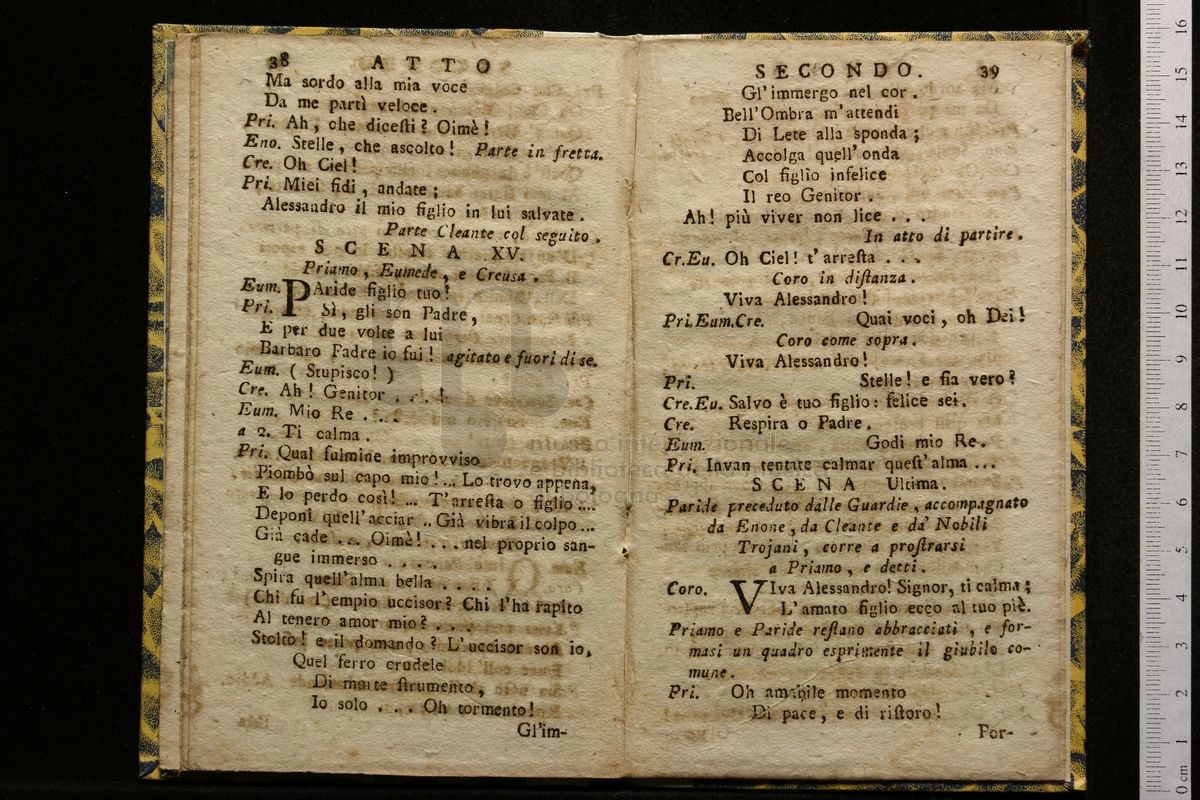 38 ATTO
Ma sordo alla mia voce
Da me partì veloce.
Pri. Ah, che dicesti? Oimè!
Eno. Stelle, che ascolto! Parte in fretta.
Cre. Oh Ciel!
Pri. Miei fidi, andate;
Alessandro il mio figlio in lui salvate.
Parte Cleante col seguito.
SCENA XV.
Priamo, Eumede, e Creusa.
Eum. PAride figlio tuo!
Pri. Sì, gli son Padre,
E per due volte a lui
Barbaro Padre io fui! agitato e fuori di se.
Eum. ( Stupisco! )
Cre. Ah! Genitor . . . !
Eum. Mio Re . . . .
a 2. Ti calma.
Pri. Qual fulmine improvviso
Piombò sul capo mio!... Lo trovo appena,
E lo perdo così! ... T'arresta o figlio ....
Deponi quell'acciar .. Già vibra il colpo ...
Già cade ... Oimè! ... nel proprio san-
gue immerso . . . .
Spira quell'alma bella . . . .
Chi fu l'empio uccisor? Chi l'ha rapito
Al tenero amor mio? . . .
Stolto! e il domando? L'uccisor son io,
Quel ferro crudele
Di morte strumento,
Io solo . . . Oh tormento!
Gl'im-
SECONDO. 39
Gl'immergo nel cor.
Bell'Ombra m'attendi
Di Lete alla sponda;
Accolga quell'onda
Col figlio infelice
Il reo Genitor.
Ah! più viver non lice . . .
In atto di partire.
Cr.Eu. Oh Ciel! t'arresta . . .
Coro in distanza.
Viva Alessandro!
Pri.Eum.Cre. Quai voci, oh Dei!
Coro come sopra.
Viva Alessandro!
Pri. Stelle! e fia vero?
Cre.Eu. Salvo è tuo figlio: felice sei.
Cre. Respira o Padre.
Eum. Godi mio Re.
Pri. Invan tentate calmar quest'alma ...
SCENA Ultima.
Paride preceduto dalle Guardie, accompagnato
da Enone, da Cleante e da' Nobili
Trojani, corre a prostrarsi
a Priamo, e detti.
Coro. VIva Alessandro! Signor, ti calma;
L'amato figlio ecco al tuo piè.
Priamo e Paride restano abbracciati, e for-
masi un quadro esprimente il giubilo co-
mune.
Pri. Oh amabile momento
Di pace, e di ristoro!
For-
museo internazionale
e biblioteca della musica
bologna
0 cm 1 2 3 4 5 6 7 8 9 10 11 12 13 14 15 16